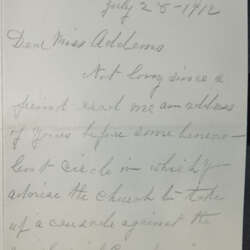 July 25-1912
Dear Miss Addams
Not long since a
friend read me an address
of yours before some benevo-
lent circle in which you
advise the Church to take
up a crusade against the